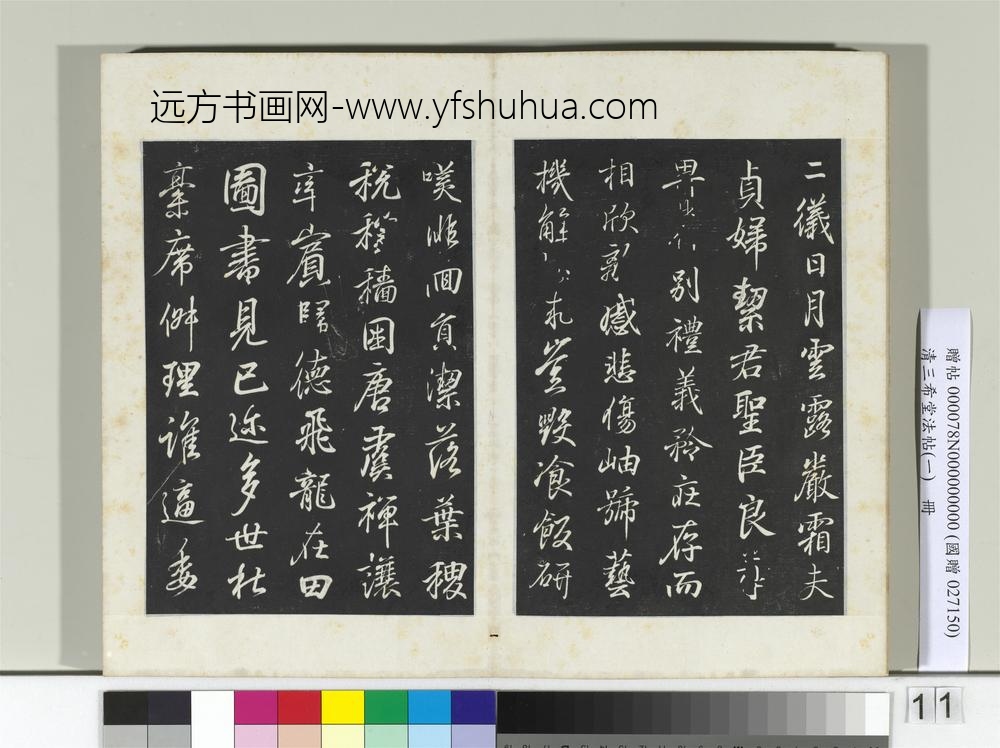 远方书画网-www.yfshuhua.com
二儀日月雲露嚴霜夫
貞婦絜君聖臣良
別禮義矜莊存而
相欣慼悲傷岫號藝
機解豈毀飡飯研
嘆囬貞潔落葉稷
稅穆穡囷唐虞禪讓
率賓歸德飛龍在田
圖書見已迹多世杜
稾席併理誰逼委
贈帖 000078N000000000 (國贈 027150)
清三希堂法帖(一) 冊
11